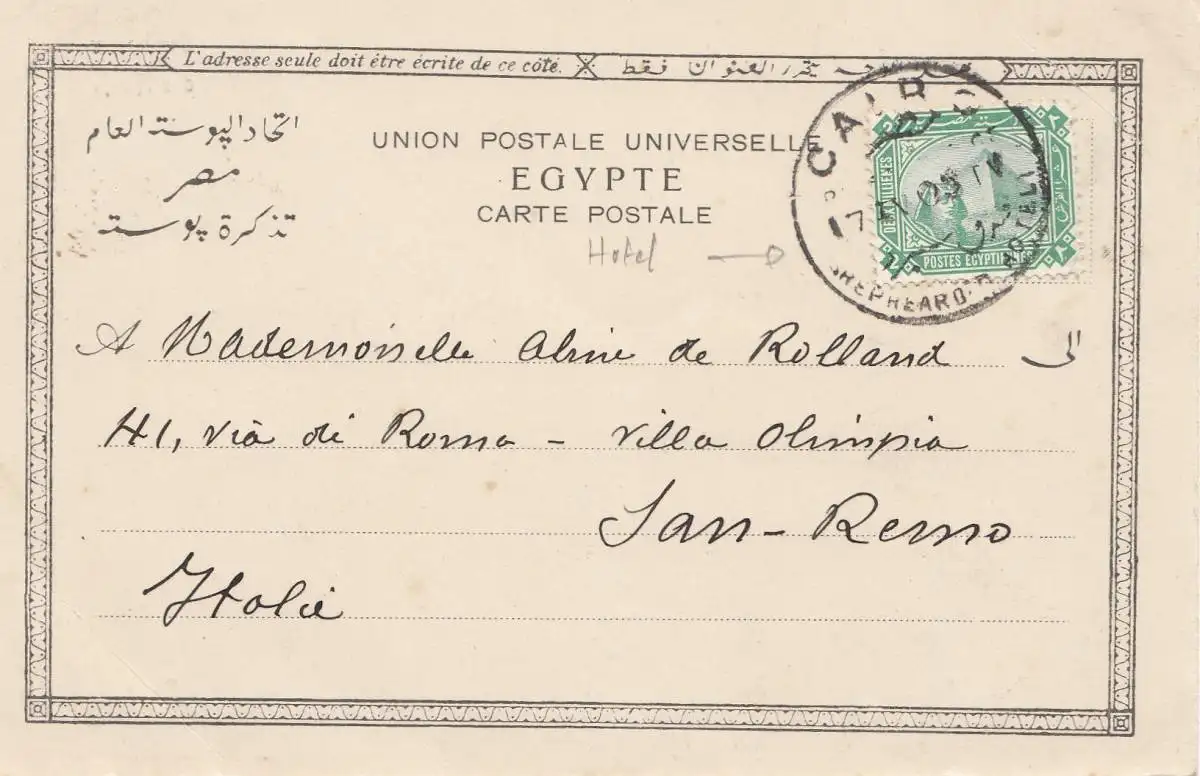 L'adresse seule doit être écrite de ce côté. فقط العنوان يحرر
اتحاد البوسته العام
مصر
تذكرة بوسته
UNION POSTALE UNIVERSELLE
EGYPTE
CARTE POSTALE
CAIRO
SHEPHEARD'S HOTEL
POSTES EGYPTIENNES
Hotel
A Mademoiselle Aline de Rolland
الى
41, via di Roma - Villa Olimpia
San-Remo
Italie